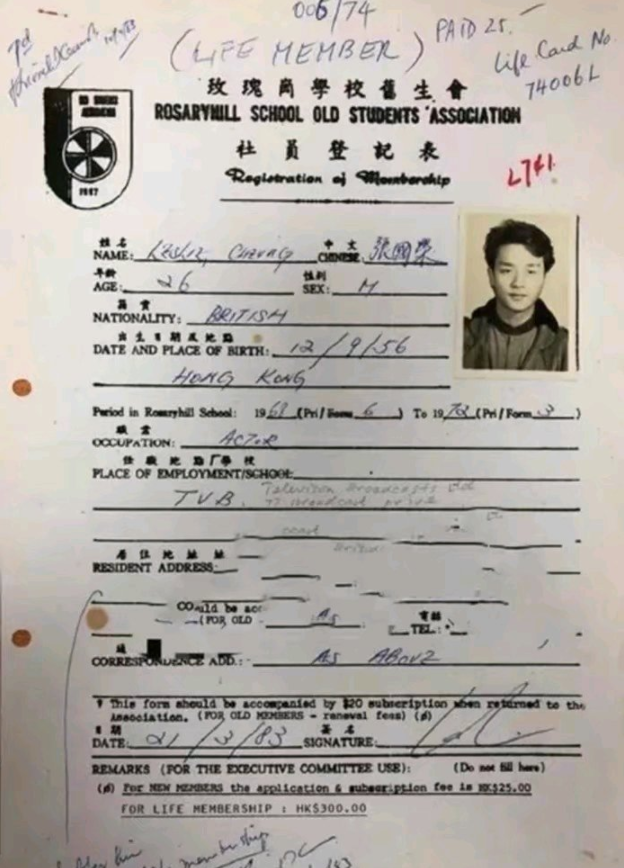 006/74
(LIFE MEMBER) PAID 25.
Life Card No.
74006L
玫瑰崗學校舊生會
ROSARYHILL SCHOOL OLD STUDENTS' ASSOCIATION
社員登記表
Registration of Membership
L741
1957
姓名 中文
NAME: LESLIE, CHEUNG CHINESE: 張國榮
年齡 性別
AGE: 26 SEX: M
籍貫
NATIONALITY: BRITISH
出生日期及地點
DATE AND PLACE OF BIRTH: 12/9/56
HONG KONG
Period in Rosaryhill School: 19 (Pri/Form 6) To 1972 (Pri/Form 3)
職業
OCCUPATION: ACTOR
任職地點/學校
PLACE OF EMPLOYMENT/SCHOOL:
TVB. Television Broadcasts Ltd
77 Broadcast Drive
居住地址
RESIDENT ADDRESS:
(FOR OLD As 電話
TEL:
CORRESPONDENCE ADD.: AS ABOVE
* This form should be accompanied by $20 subscription when returned to the
Association. (FOR OLD MEMBERS - renewal fees) (ø)
日期 簽名
DATE: 21/3/83 SIGNATURE:
REMARKS (FOR THE EXECUTIVE COMMITTEE USE): (Do not fill here)
(ø) For NEW MEMBERS the application & subscription fee is HK$25.00
FOR LIFE MEMBERSHIP : HK$300.00
membership